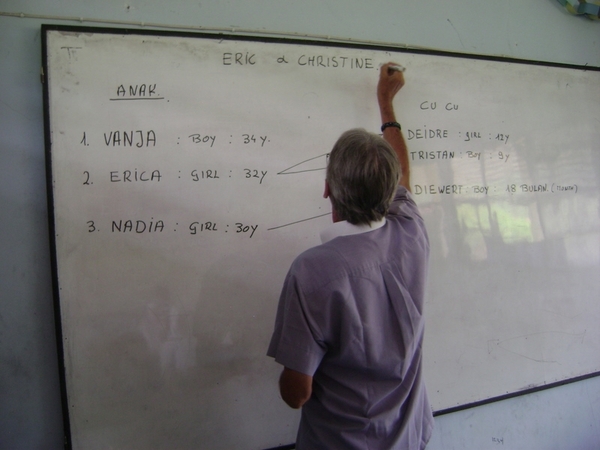 ERIC & CHRISTINE
ANAK.
CU CU
1. VANJA : BOY : 34 Y.
DEIDRE : GIRL : 12Y
2. ERICA : GIRL : 32Y
TRISTAN : BOY : 9Y
DIEWERT : BOY : 18 BULAN
3. NADIA : GIRL : 30Y